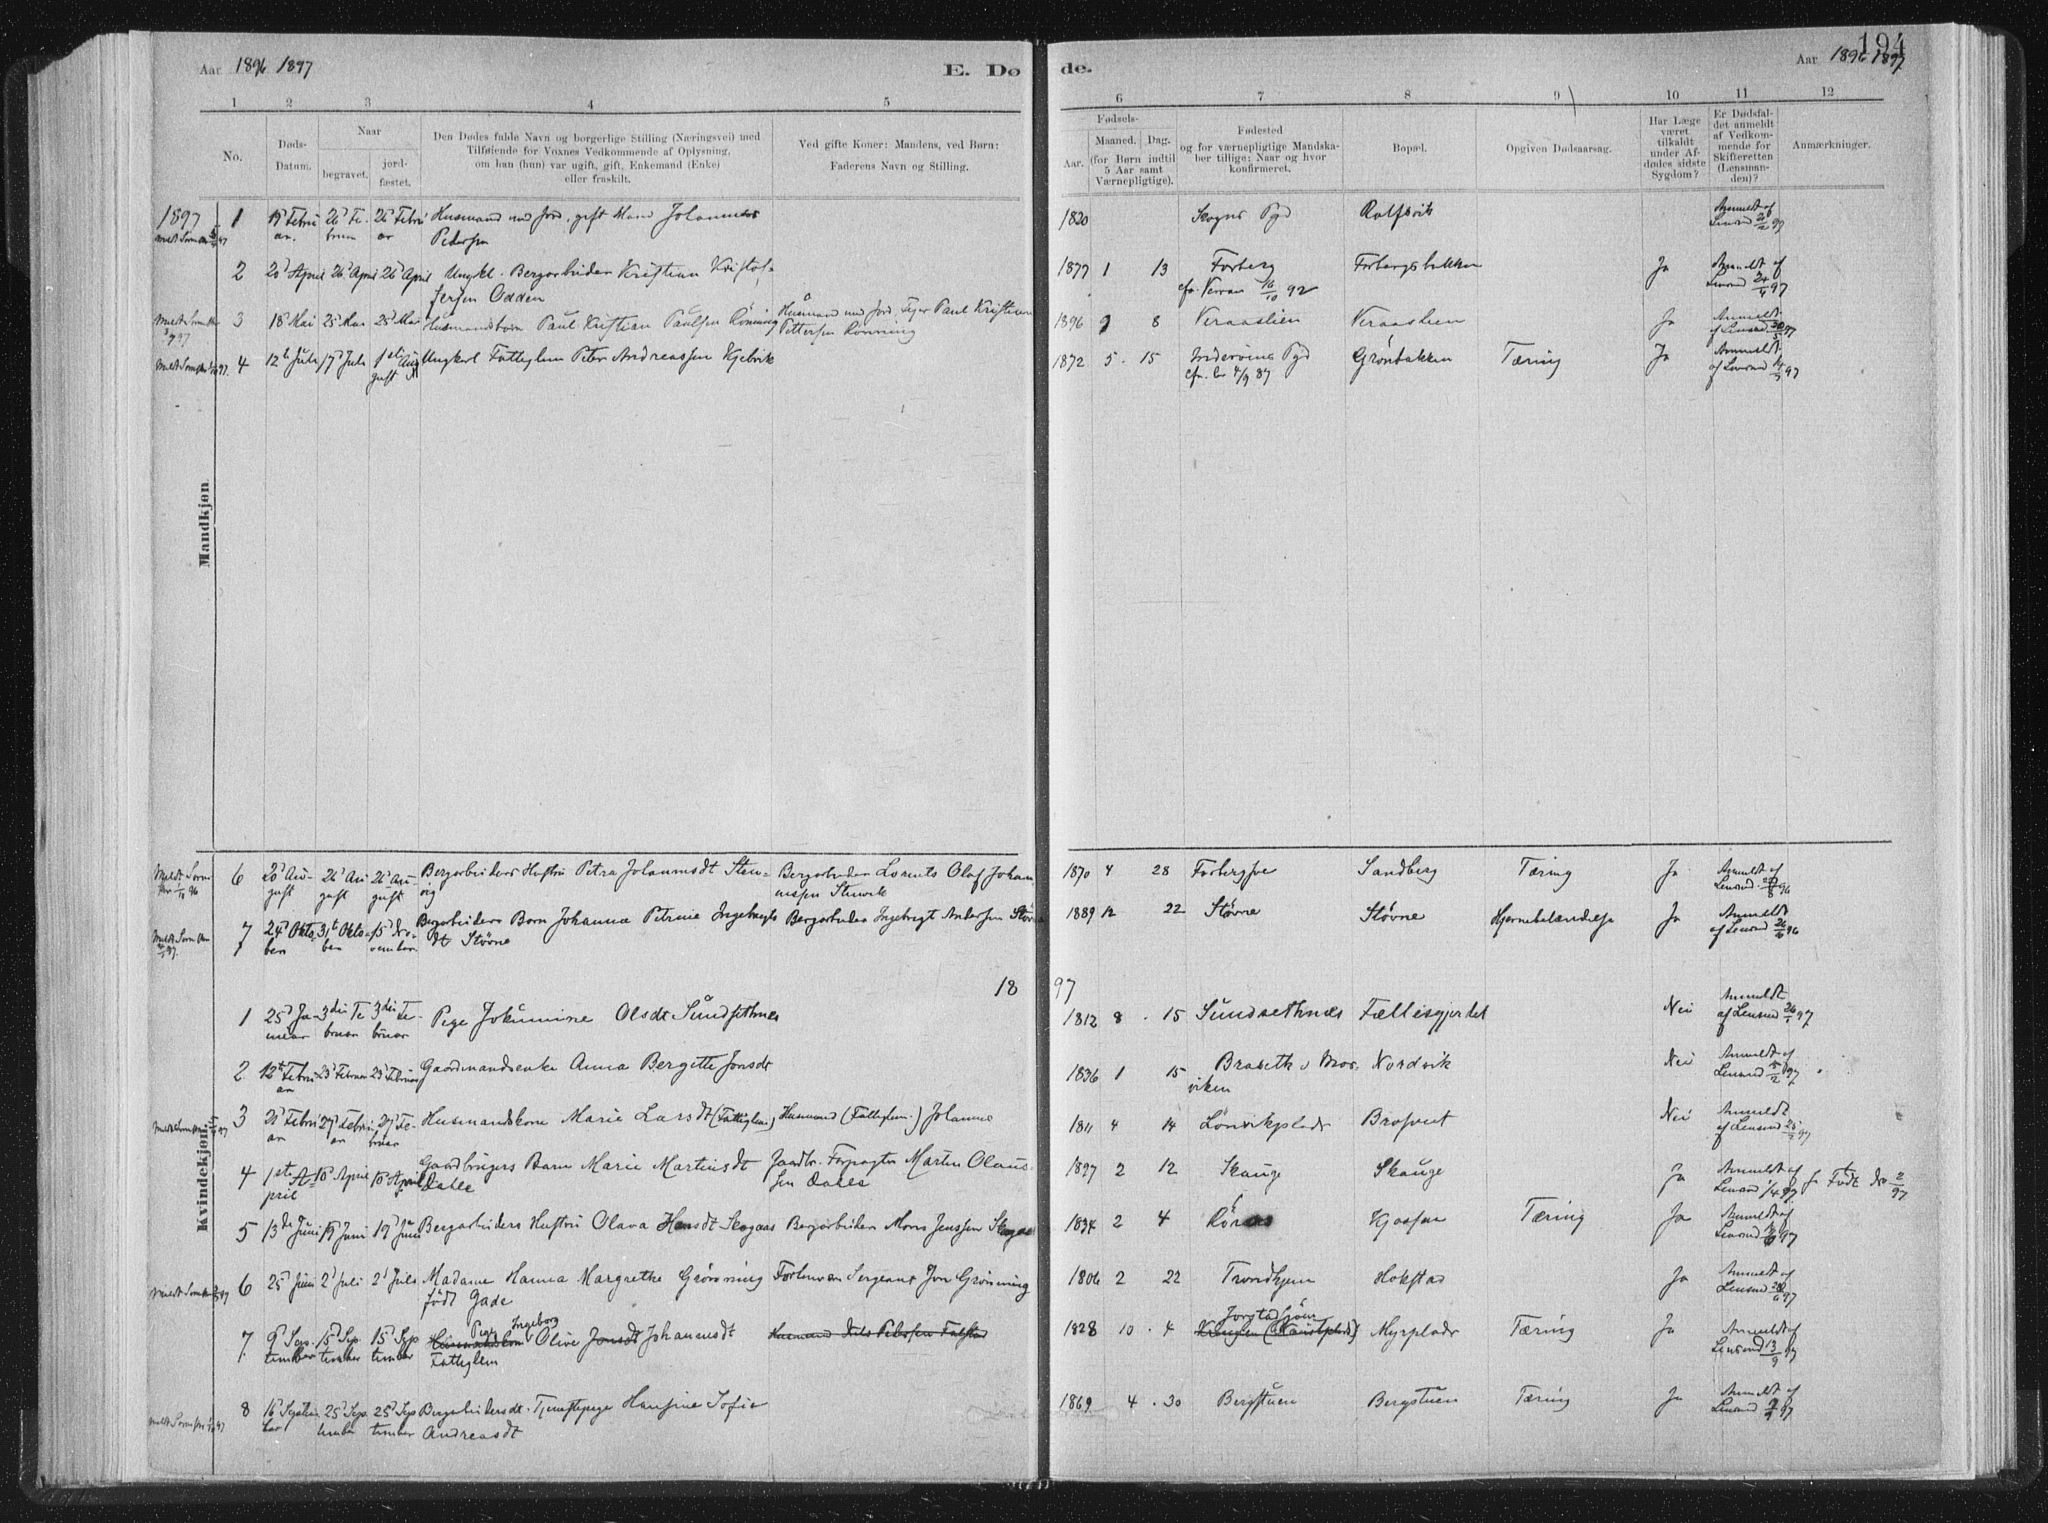 Aar 1896 1897
E. Dø
de.
Aar 1896 1897
194
1 2 3 4 5
6 7 8 9 10 11 12
No.
Døds-
Datum.
Naar
begravet.
jord-
fæstet.
Den Dødes fulde Navn og borgerlige Stilling (Næringsvei) med
Tilføiende for Voxnes Vedkommende af Oplysning,
om han (hun) var ugift, gift, Enkemand (Enke)
eller fraskilt.
Ved gifte Koner: Mandens, ved Børn:
Faderens Navn og Stilling.
Fødsels-
Aar.
Maaned. Dag.
(for Børn indtil
5 Aar samt
Værnepligtige).
Fødested
og for værnepligtige Mandska-
ber tillige: Naar og hvor
konfirmeret.
Bopæl.
Opgiven Dødsaarsag.
Har Læge
været
tilkaldt
under Af-
dødes sidste
Sygdom?
Er Dødsfal-
det anmeldt
af Vedkom-
mende for
Skifteretten
(Lensman-
den)?
Anmærkninger.
Mandkjøn.
1897
1 Husmand med Jord, gift Mand Johannes
Pedersen
1820 Skogns Pgd Rolfsvik Anmeldt af
Lensmd 97
2 20d April 26d April 26d April Ungkl. Bergarbeider Kristian Kristof-
fersen Odden
1877 1 13 Forberg Forbergsbakken Ja Anmeldt af
cfr. Verran 16/10 92 Lensmd 24/4 97
3 18d Mai 25d Mai 25d Mai Husmandsbarn Paul Kristian Paulsen Rønning Husmand med Jord, Paul Kristian
Pettersen Rønning
1896 8 Veraaslien Veraaslien Ja Anmeldt
af Lensmd 97
4 12te Juli 17d Juli 1ste Au-
gust Ungkarl Fattiglem Peter Andreassen Kjelvik
1872 5 15 Inderøens Pgd Grønbakken Tæring Ja Anmeldt
4/9 87 af Lensmd 97
Kvindekjøn.
6 20d Au-
gust 26d Au-
gust 26d Au-
gust Bergarbeiders Hustru Petra Johannesdt Sten-
vig Bergarbeider Lorents Olaf Johan-
nessen Stenvik
1870 4 28 Sandberg Tæring Ja Anmeldt af
Lensmd 96
7 24d Okto-
ber 31te Okto-
ber 15d No-
vember Bergarbeiders Barn Johanna Petrine Ingebrigts-
dt Støvne Bergarbeider Ingebrigt Andersen Støvne
1889 12 22 Støvne Støvne Hjernebetændelse Ja Anmeldt
af Lensmd 26/10 96
18 97
1 25d Ja-
nuar 3die Fe-
bruar 3die Fe-
bruar Pige Jokumine Olsdt Sundsethnes
1812 8 15 Sundsethnæs Fællesgjerdet Nei Anmeldt
af Lensmd 26/1 97
2 12te Febru-
ar 23d Februar 23d Februar Gaardmandsenke Anna Bergitte Jonsdt
1836 1 15 Braseth i Mos-
viken Nordvik Nei Anmeldt af
Lensmd 15/2 97
3 21d Febru-
ar 27d Febru-
ar 27d Fe-
bruar Husmandskone Marie Larsdt (Fattiglem) Husmand (Fattiglem) Johannes
1811 4 14 Lønvikplads Brosveet Nei Anmeldt
af Lensmd 25/2 97
4 1ste A-
pril 10d April 10d April Gaardbrugers Barn Marie Martinsdt
Dahle Gaardbr. Forpagter Martin Olaus-
sen Dahle
1897 2 12 Skauge Skauge Ja Anmeldt af
Lensmd 1/4 97 Født 97
5 13de Juni 19d Juni 19d Juni Bergarbeiders Hustru Olava Hansdt Skogaas Bergarbeider Mons Jenssen Skogaas
1834 2 4 Kjosen Tæring Ja Anmeldt af
Lensmd 97
6 25d Juni 2d Juli 2d Juli Madame Hanna Margrethe Grønning
født Gade Forhenvær. Sergeant Jon Grønning
1806 2 22 Trondhjem Hokstad Ja Anmeldt af
Lensmd 97
7 9d Sep-
tember 15d Sep-
tember 15d Sep-
tember Pige Ingeborg
Olive Jonsdt Johannesdt
Fattiglem
1828 10 4 Myrplads Tæring Ja Anmeldt af
Lensmd 13/9 97
8 16d Septem-
ber 25d Sep-
tember 25d Sep-
tember Bergarbeidersdt. Tjenestepige Hansine Sofie
Andreasdt
1869 4 30 Bergstuen Bergstuen Tæring Ja Anmeldt af
Lensmd 97